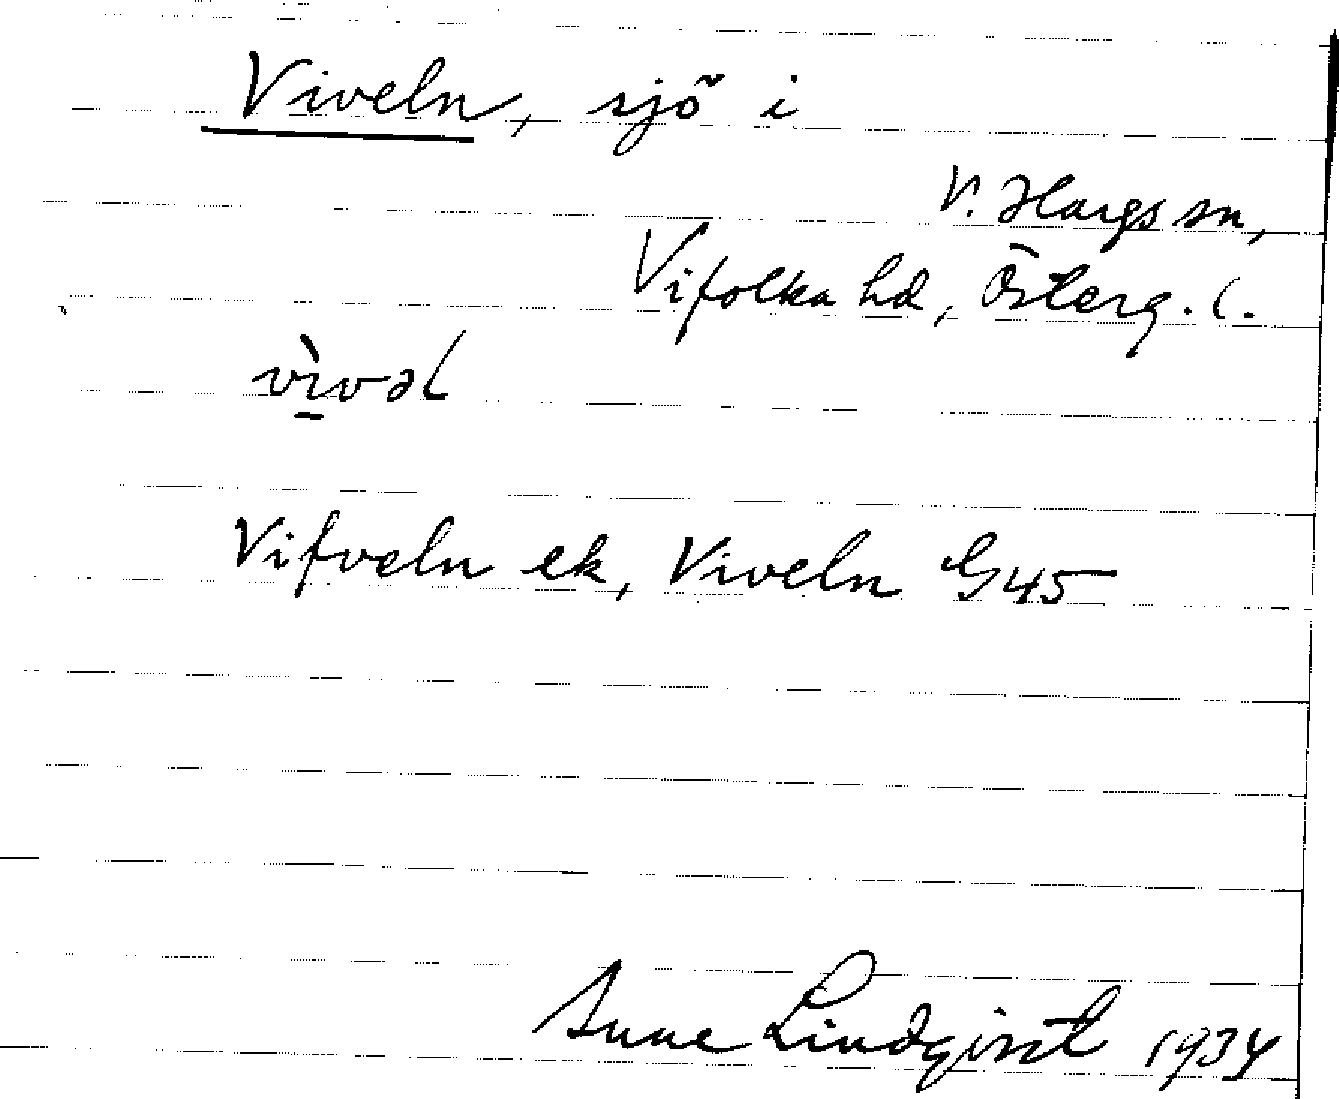 Viveln, sjö i
V. Hargs sn,
Vifolka hd, Österg. l.
vìvəl
Vifveln ek, Viveln G45
Sune Lindqvist 1934